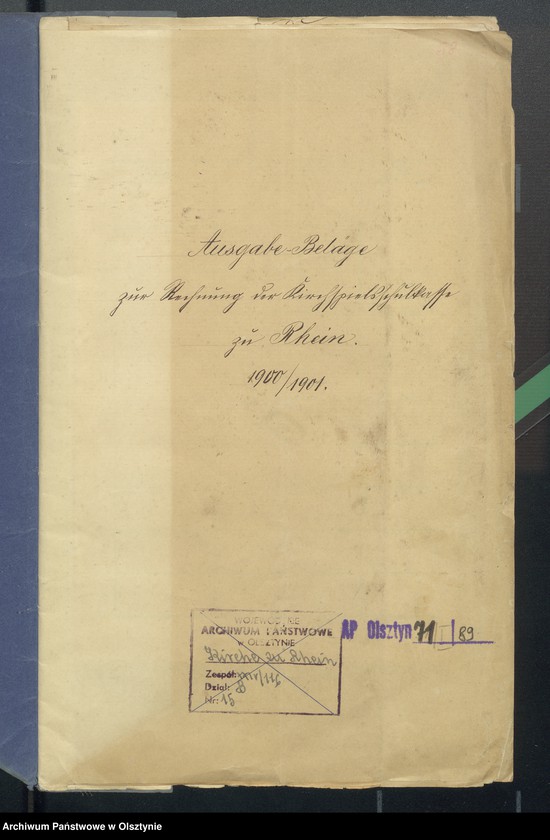 Ausgabe-Beläge
zur Rechnung der Kirchspielsschulkasse
zu Rhein.
1900/1901.
WOJEWÓDZKIE
ARCHIWUM PAŃSTWOWE
w OLSZTYNIE
Kirche zu Rhein
Zespół: XXV/116
Dział: B
Nr: 15
AP Olsztyn 71 I 89
Archiwum Państwowe w Olsztynie